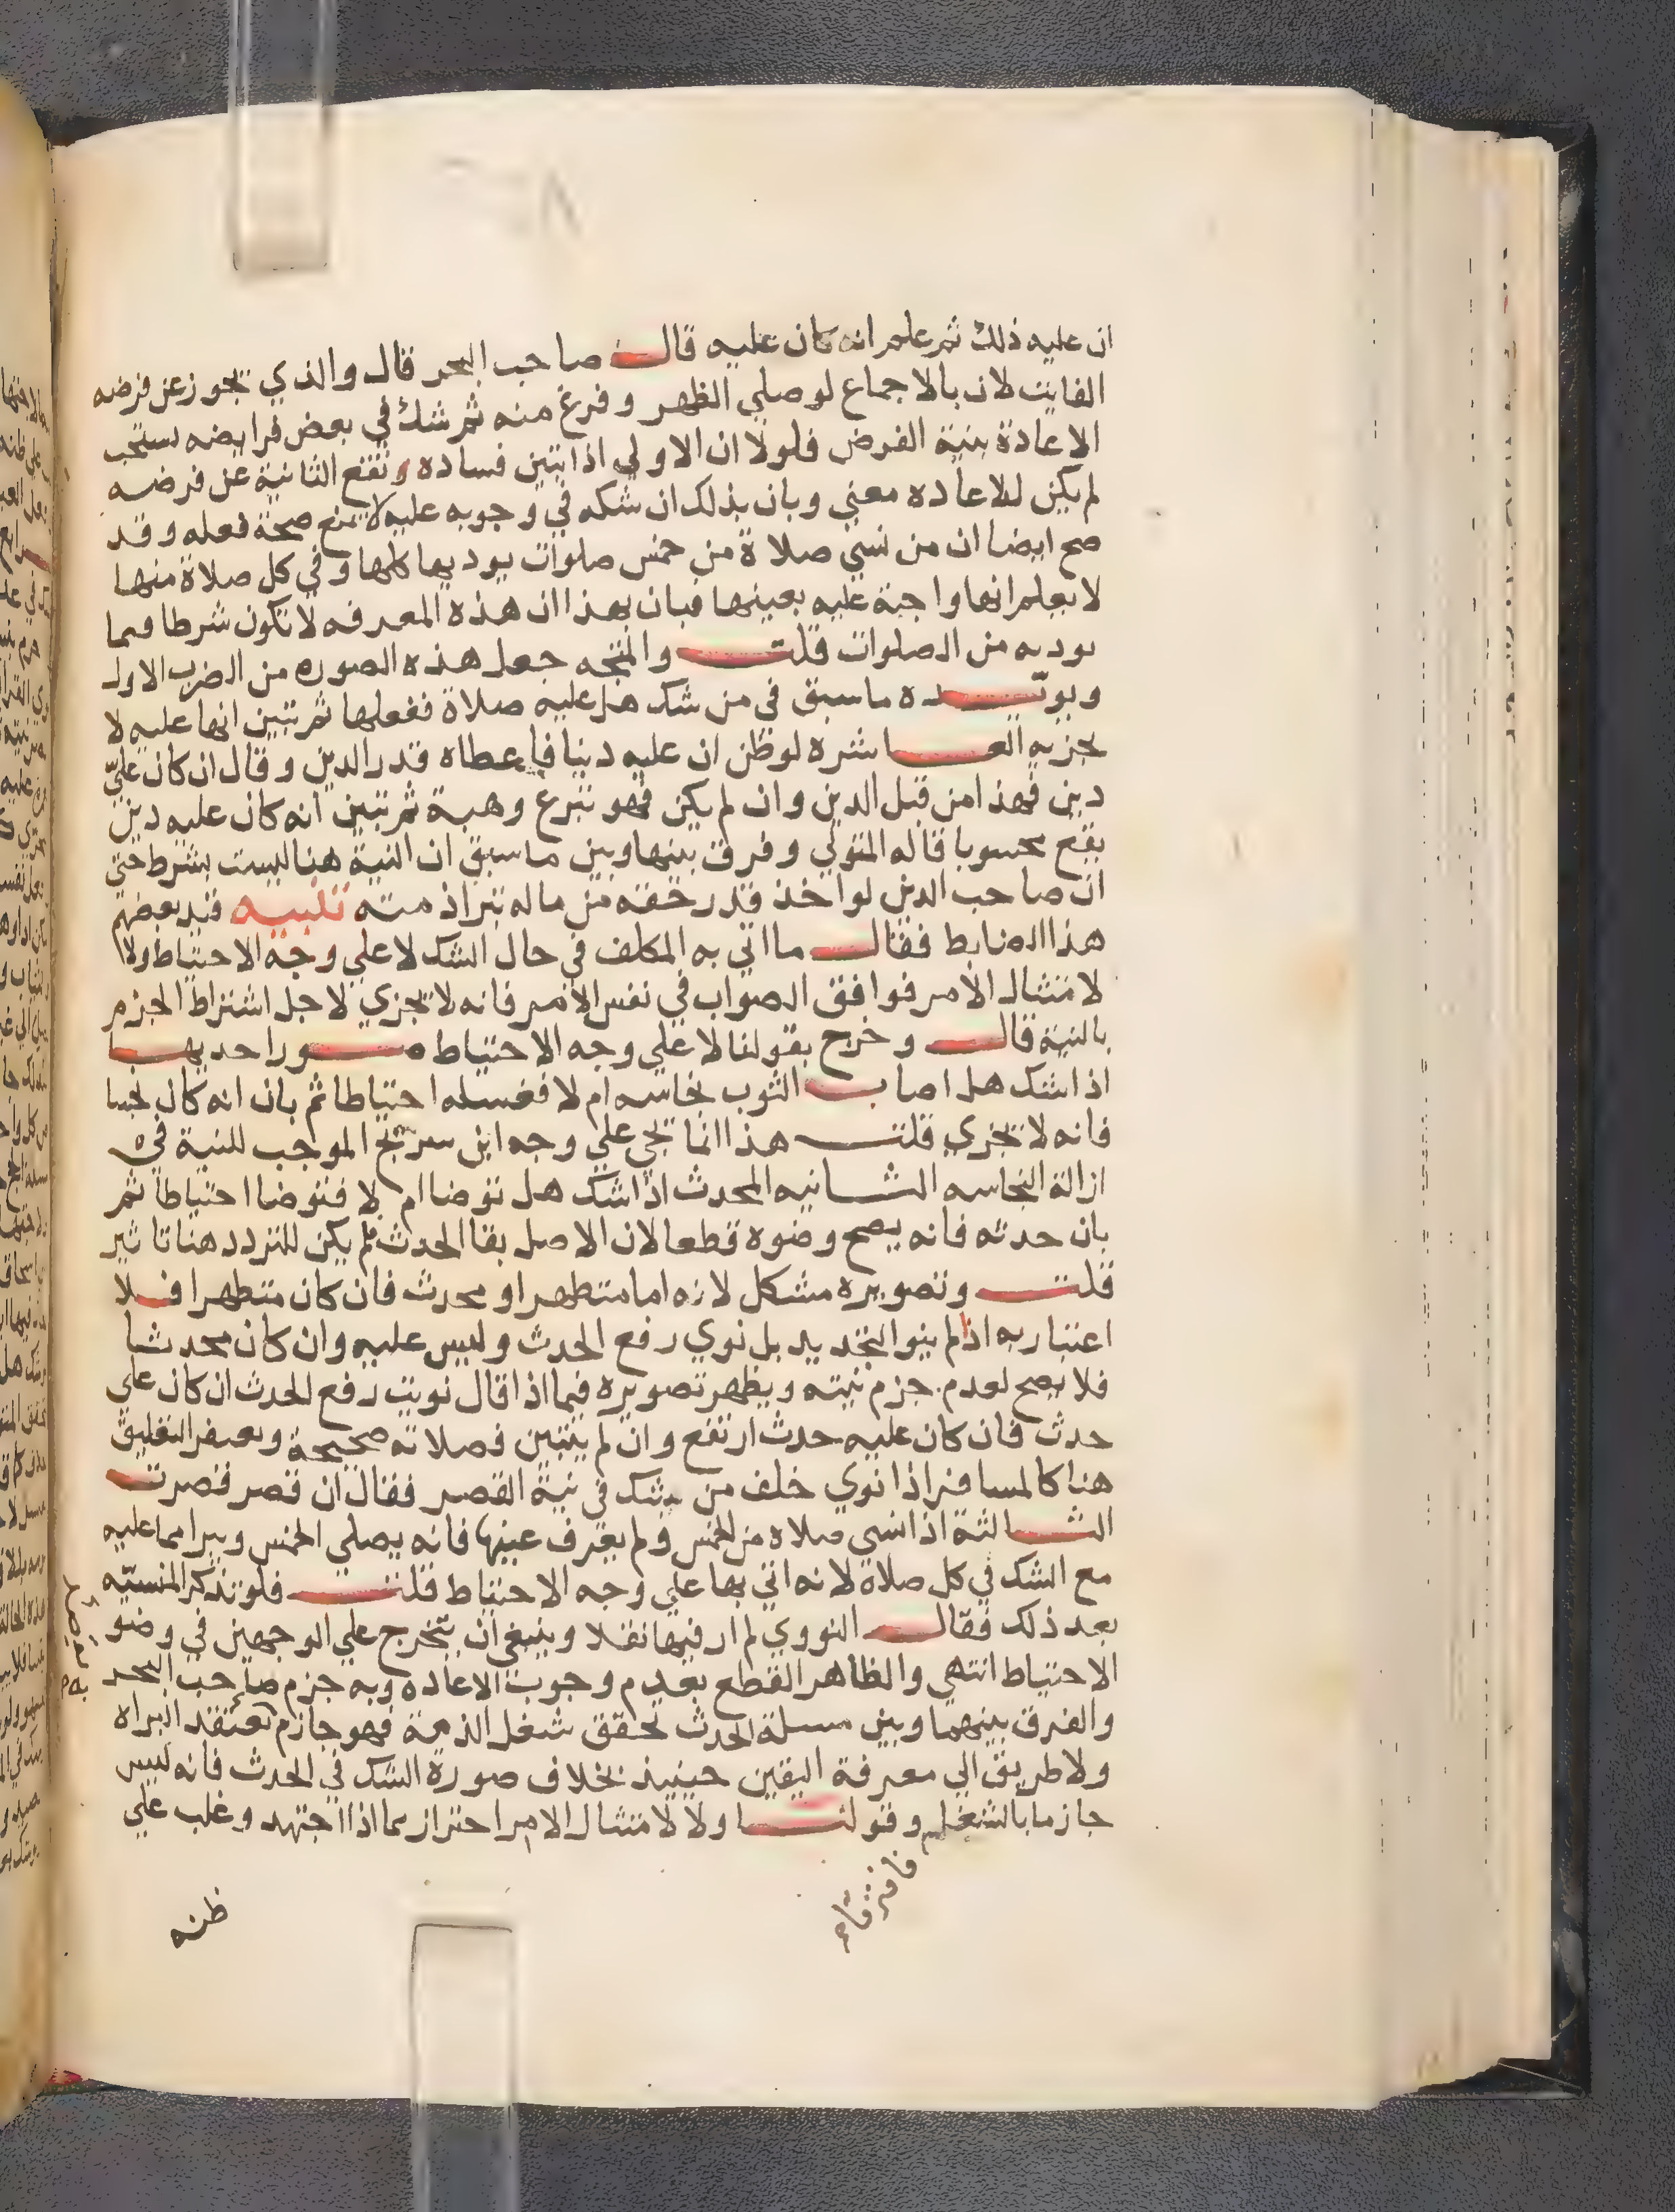 ان عليه ذلك ثم علم انه كان عليه قال صاحب البحر قال والذي يجوز عن فرضه
الفايت لان بالاجماع لو صلي الظهر وفرغ منه ثم شك في بعض فرايضه يستحب
الاعادة بنية الفرض فلولا ان الاولي اذا تبين فساده وتقع الثانية عن فرضه
لم يكن للاعاده معني وبان بذلك ان شكه في وجوبه عليه لا يمنع صحة فعله وقد
صح ايضا ان من نسي صلاة من خمس صلوات يوديها كلها وفي كل صلاة منها
لا يعلم انها واجبة عليه بعينها فبان بهذا ان هذه المعرفه لا تكون شرطا فيما
يوديه من الصلوات قلت والمتجه جعل هذه الصوره من الضرب الاول
ويويده ما سبق في من شك هل عليه صلاة ففعلها ثم تبين انها عليه لا
يجزيه العاشره لو ظن ان عليه دينا فاعطاه قدر الدين وقال ان كان عليّ
دين فهذا من قبل الدين وان لم يكن فهو تبرع وهبة ثم تبين انه كان عليه دين
يقع محسوبا قاله المتولي وفرق بينها وبين ما سبق ان النية هنا ليست بشرط حتي
ان صاحب الدين لو اخذ قدر حقه من ماله تبرا ذمته تنبيه قيد بعضهم
هذا الضابط فقال ما اتي به المكلف في حال الشك لا علي وجه الاحتياط ولا
لامتثال الامر فوافق الصواب في نفس الامر فانه لا يجزي لاجل اشتراط الجزم
بالنية قال وخرج بقولنا لا علي وجه الاحتياط صور احديها
اذا شك هل اصاب الثوب نجاسه ام لا فغسله احتياطا ثم بان انه كان نجسا
فانه لا يجزي قلت هذا انما يجي علي وجه ابن سريج الموجب للنية في
ازالة النجاسه الثانيه المحدث اذا شك هل توضا ام لا فتوضا احتياطا ثم
بان حدثه فانه يصح وضوه قطعا لان الاصل بقا الحدث فلم يكن للتردد هنا تاثير
قلت وتصويره مشكل لانه اما متطهر او محدث فان كان متطهرا فلا
اعتبار به اذا لم ينو التجديد بل نوي رفع الحدث وليس عليه وان كان محدثا
فلا يصح لعدم جزم نيته ويظهر تصويره فيما اذا قال نويت رفع الحدث ان كان علي
حدث فان كان عليه حدث ارتفع وان لم يتبين فصلاته صحيحة ويغتفر التعليق
هنا كالمسافر اذا نوي خلف من يشك في نية القصر فقال ان قصر قصرت
الثالثة اذا نسي صلاه من الخمس ولم يعرف عينها فانه يصلي الخمس ويبرا مما عليه
مع الشك في كل صلاة لانه اتي بها علي وجه الاحتياط قلت فلو تذكر المنسيّه
بعد ذلك فقال النووي لم ار فيها نقلا وينبغي ان يتخرج علي الوجهين في وضو
الاحتياط انتهي والظاهر القطع بعدم وجوب الاعاده وبه جزم صاحب البحر
والفرق بينهما وبين مسلة الحدث تحقق شغل الذمة فهو جازم بقصد البراه
ولا طريق الي معرفة اليقين حينيذ بخلاف صورة الشك في الحدث فانه ليس
جازما بالشغل وقولنا ولا لامتثال الامر احتراز مما اذا اجتهد وغلب علي
فافترقا
ظنه